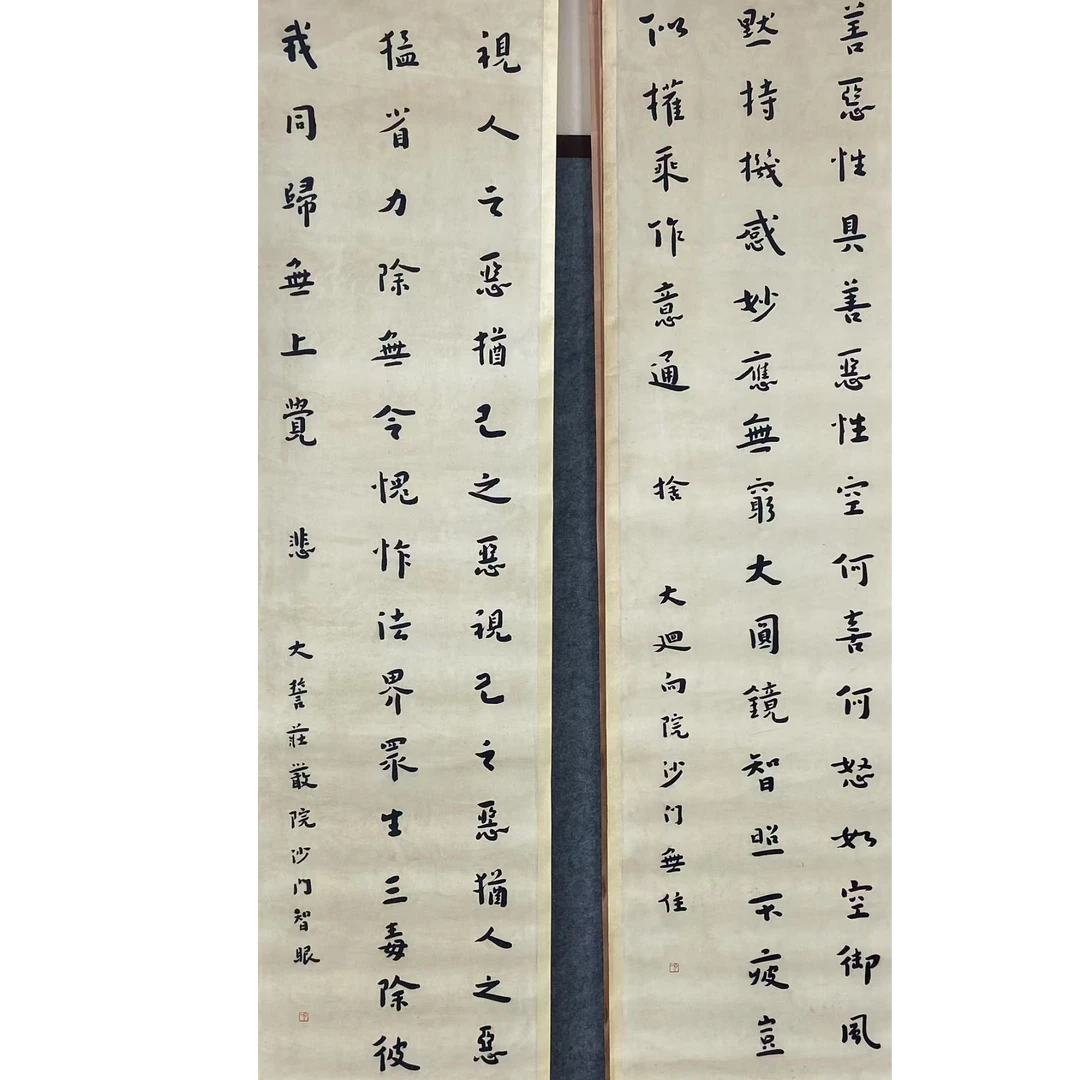 善惡性具善惡性空何喜何怒如空御風
默持機感妙應無窮大圓鏡智照不疲豈
似權乘作意通 捨 大迴向院沙门無住
視人之惡猶己之惡視己之惡猶人之惡
猛省力除無令愧怍法界眾生三毒除彼
我同歸無上覺 悲 大誓莊嚴院沙门智眼